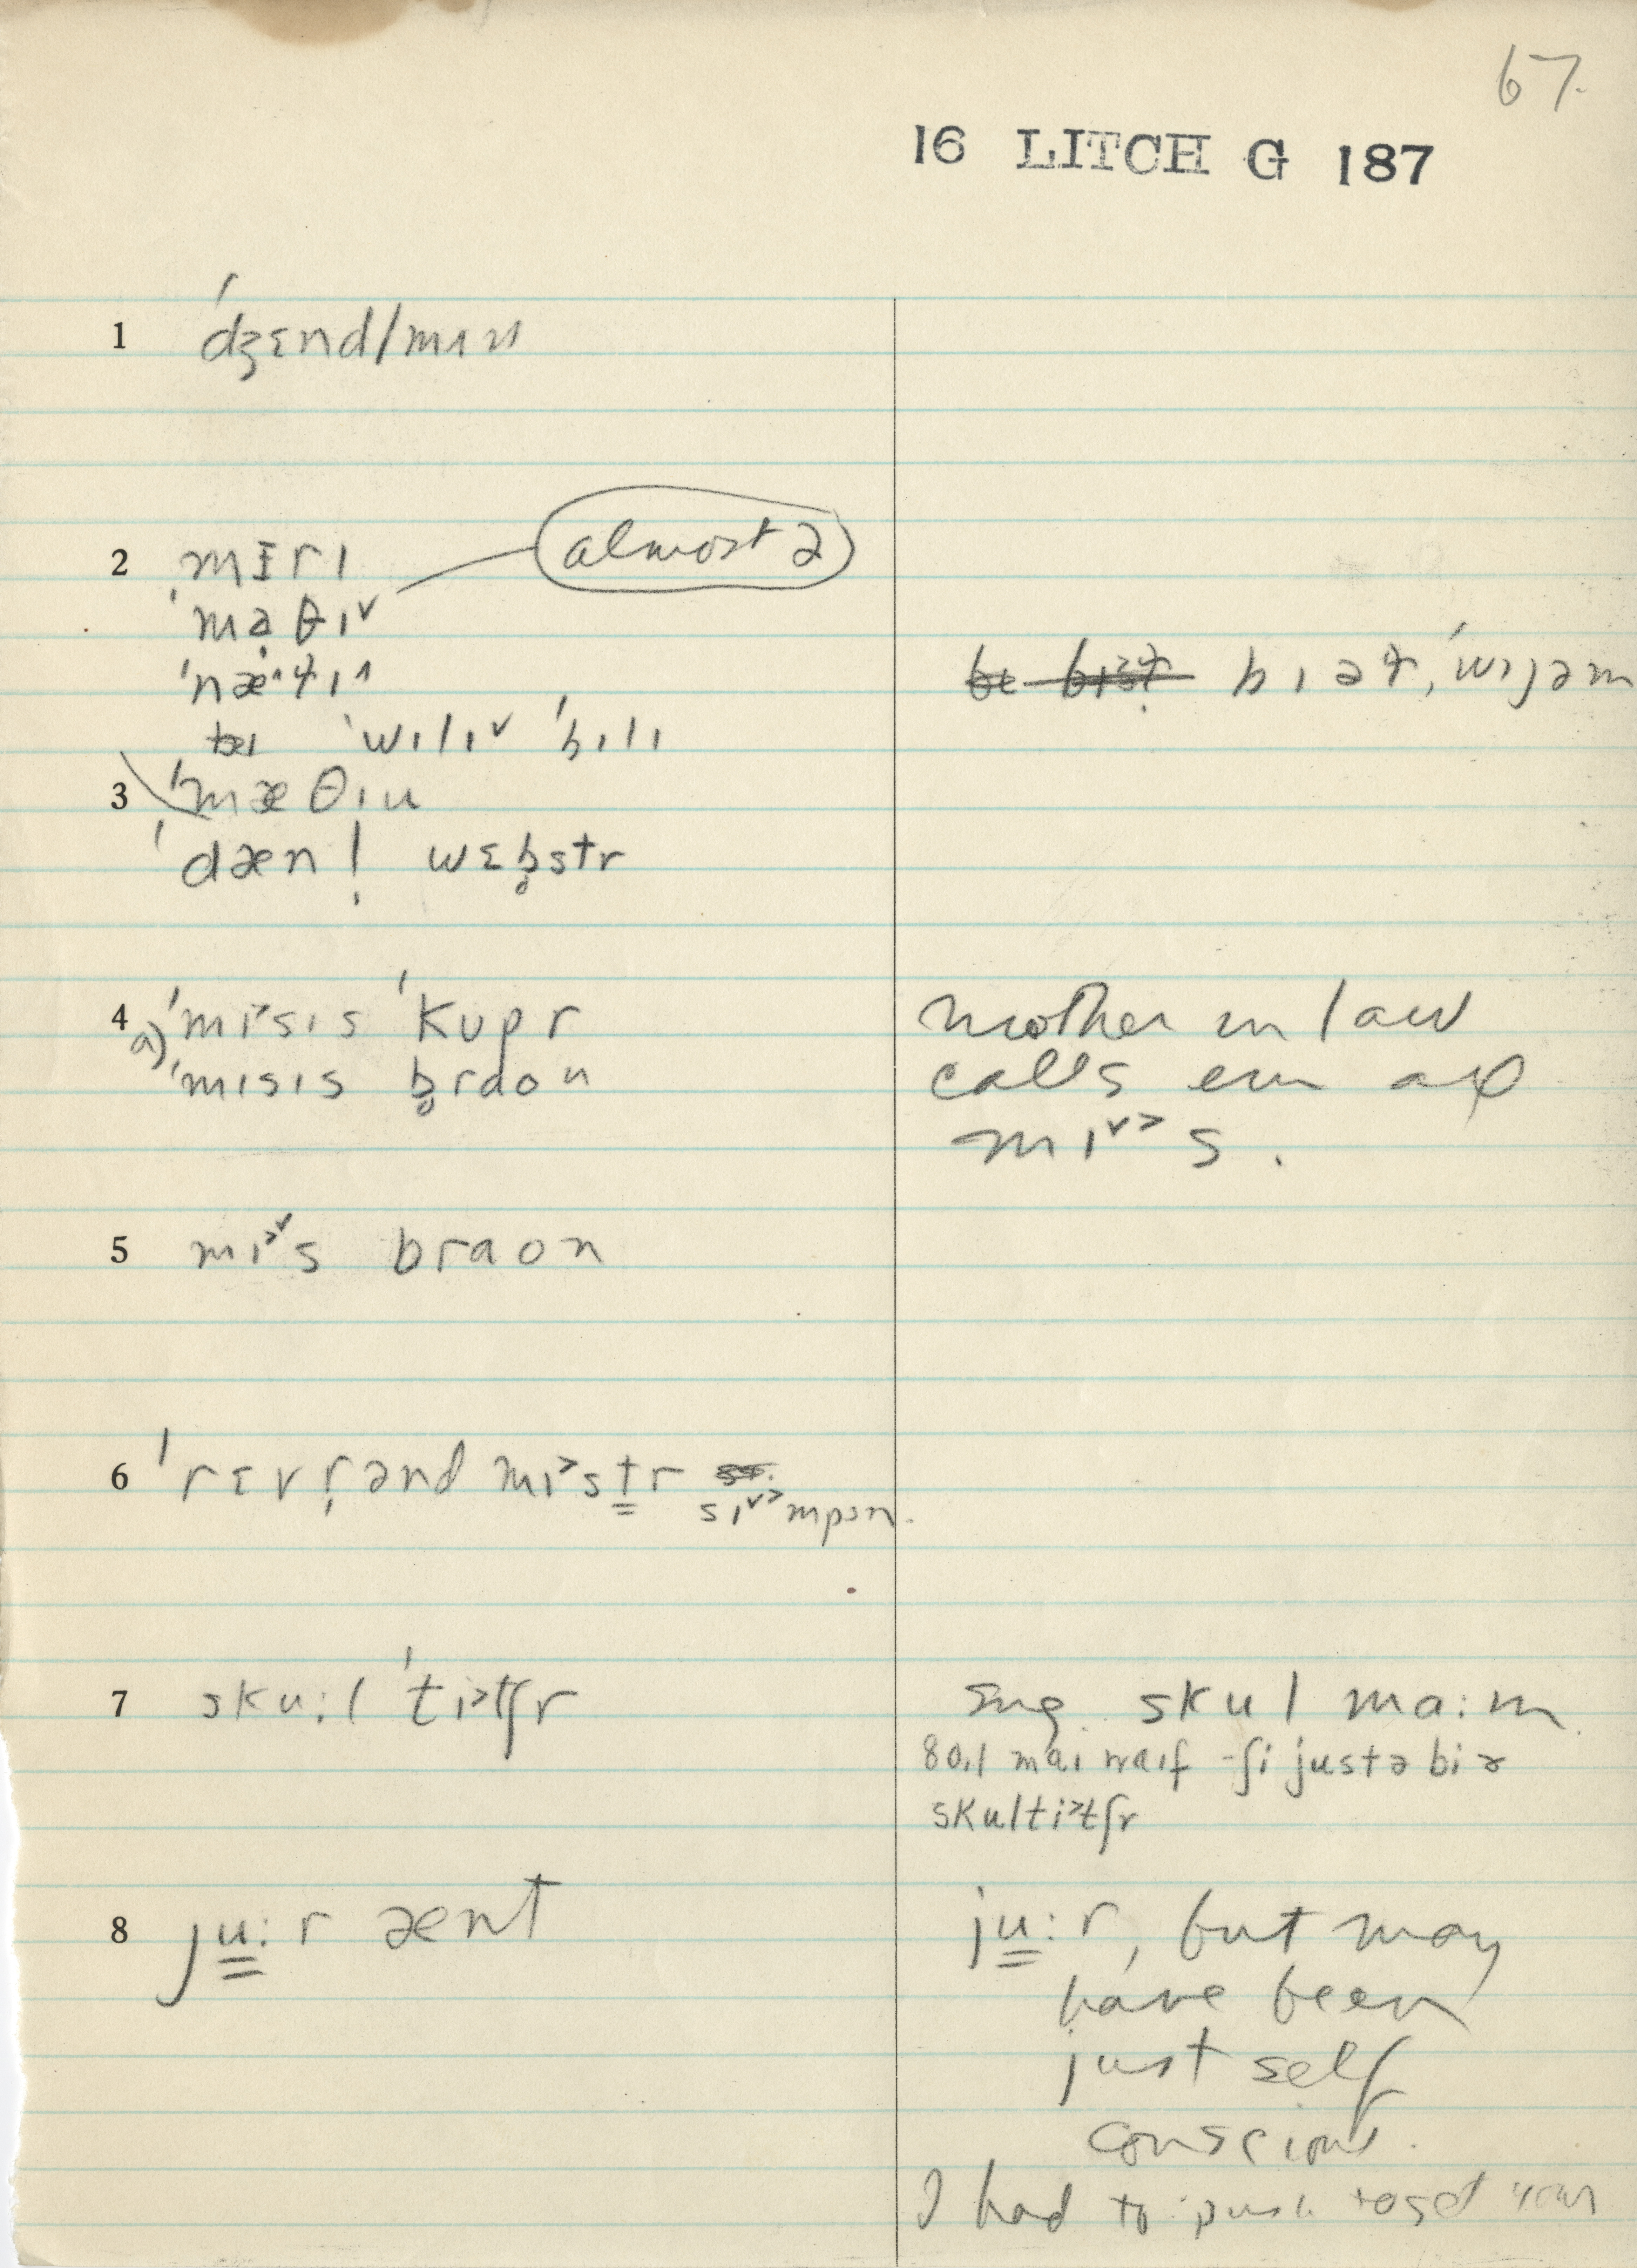 67.
16 LITCH G 187
1 ˈdʒɛnd/mɪn
2 mɪrɪ
almost ə
ˈma̤θɪ˅
ˈnæ˄ɬɪ˄
ˈwɪlɪ˅ ˈbɪlɪ
bɪəɬ, ˈwɪjəm
3 ˈmæθɪu
ˈdæn! wɛb̥str
4 ˈmɪ˃sɪs ˈkupr
a) ˈmɪsɪs b̥raon
mother in law
calls em all
mɪ˅˃s.
5 mɪ˃˅s braon
6 ˈrɛvr̩ənd mɪ˃st̳r
sɪ˅˃mpsn.
7 sku:l ˈti˃tʃr
sug. skul ma:m
maɪ waɪf - ʃi justə bi ə
skulti˃tʃr
8 ju̳:r ænt
ju̳:r, but may
have been
just self
conscious.
I had to push to get